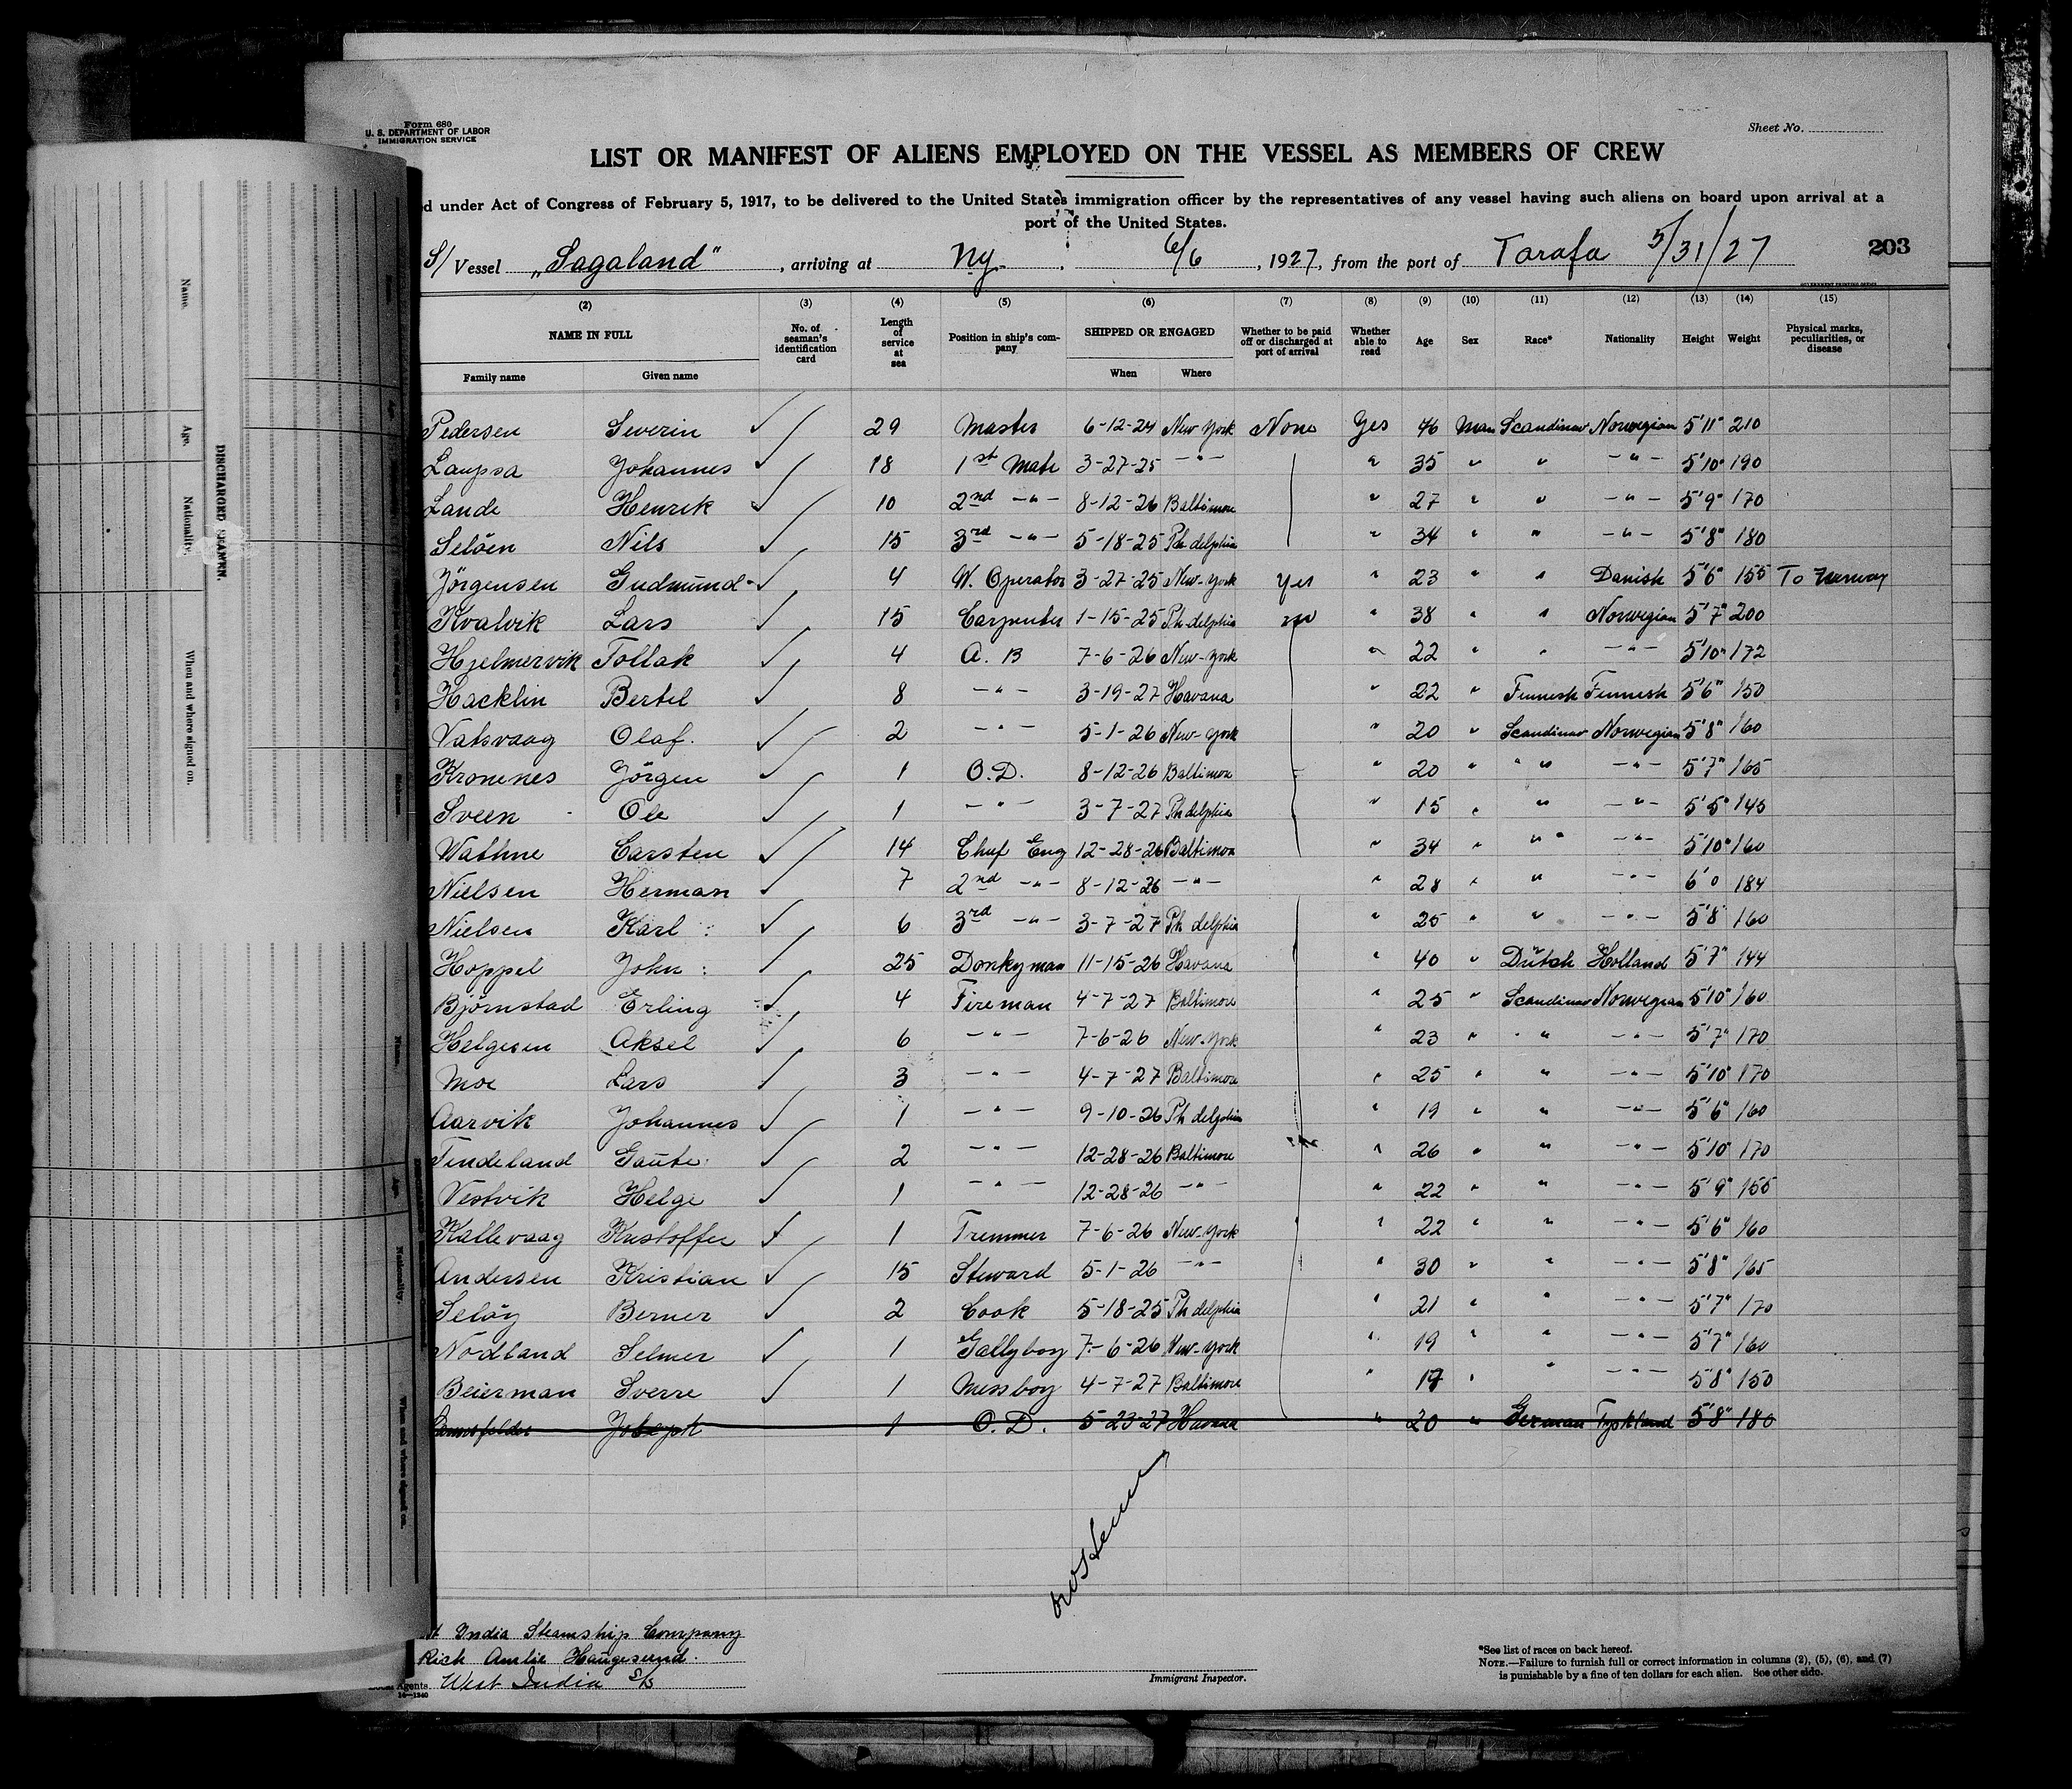 Form 680
U. S. DEPARTMENT OF LABOR
IMMIGRATION SERVICE
Sheet No.
LIST OR MANIFEST OF ALIENS EMPLOYED ON THE VESSEL AS MEMBERS OF CREW
d under Act of Congress of February 5, 1917, to be delivered to the United States immigration officer by the representatives of any vessel having such aliens on board upon arrival at a
port of the United States.
S/ Vessel „Sagaland", arriving at Ny. 6/6, 1927, from the port of Tarafa 5/31/27 203
(2) (3) (4) (5) (6) (7) (8) (9) (10) (11) (12) (13) (14) (15)
NAME IN FULL No. of seaman's identification card Length of service at sea Position in ship's company SHIPPED OR ENGAGED Whether to be paid off or discharged at port of arrival Whether able to read Age Sex Race* Nationality Height Weight Physical marks, peculiarities, or disease
Family name Given name When Where
Pedersen Severin ✓ 29 Master 6-12-24 New York None Yes 46 Man Scandinav Norwegian 5'11" 210
Laupsa Johannes ✓ 18 1st Mate 3-27-25 -"- " 35 " " -"- 5'10" 190
Lande Henrik ✓ 10 2nd -"- 8-12-26 Baltimore " 27 " " -"- 5'9" 170
Selöen Nils ✓ 15 3rd -"- 5-18-25 Ph delphia " 34 " " -"- 5'8" 180
Jörgensen Gudmund ✓ 4 W. Operator 3-27-25 New-York Yes " 23 " " Danish 5'6" 155 To Norway
Kvalvik Lars ✓ 15 Carpenter 1-15-25 Ph delphia no " 38 " " Norwegian 5'7" 200
Hjelmervik Tollak ✓ 4 A. B 7-6-26 New-York " 22 " " -"- 5'10" 172
Hacklin Bertel ✓ 8 -"- 3-19-27 Havana " 22 " Finnish Finnish 5'6" 150
Vatsvaag Olaf. ✓ 2 -"- 5-1-26 New-York " 20 " Scandinav Norwegian 5'8" 160
Kronenes Jörgen ✓ 1 O.D. 8-12-26 Baltimore " 20 " " -"- 5'7" 165
Sveen Ole ✓ 1 -"- 3-7-27 Ph delphia " 15 " " -"- 5'5" 145
Wathne Carsten ✓ 14 Chief Eng 12-28-26 Baltimore " 34 " " -"- 5'10" 160
Nielsen Herman ✓ 7 2nd -"- 8-12-26 -"- " 28 " " -"- 6'0 184
Nielsen Karl ✓ 6 3rd -"- 3-7-27 Ph delphia " 25 " " -"- 5'8" 160
Hoppel John ✓ 25 Donkyman 11-15-26 Havana " 40 " Dutch Holland 5'7" 144
Björnstad Erling ✓ 4 Fireman 4-7-27 Baltimore " 25 " Scandinav Norwegian 5'10" 160
Helgesen Aksel ✓ 6 -"- 7-6-26 New-York " 23 " " -"- 5'7" 170
Moe Lars ✓ 3 -"- 4-7-27 Baltimore " 25 " " -"- 5'10" 170
Aarvik Johannes ✓ 1 -"- 9-10-26 Ph delphia " 19 " " -"- 5'6" 160
Tindeland Gaute ✓ 2 -"- 12-28-26 Baltimore " 26 " " -"- 5'10" 170
Vestvik Helge ✓ 1 -"- 12-28-26 -"- " 22 " " -"- 5'9" 155
Kallevaag Kristoffer ✓ 1 Tremmer 7-6-26 New-York " 22 " " -"- 5'6" 160
Andersen Kristian ✓ 15 Steward 5-1-26 -"- " 30 " " -"- 5'8" 165
Selöy Berner ✓ 2 Cook 5-18-25 Ph delphia " 21 " " -"- 5'7" 170
Nodland Selmer ✓ 1 Gallyboy 7-6-26 New-York " 19 " " -"- 5'7" 160
Beierman Sverre ✓ 1 Messboy 4-7-27 Baltimore " 17 " " -"- 5'8" 150
Joseph 1 O.D. 5-23-27 Havana " 20 " German Tyskland 5'8" 180
India Steamship Company
Rich Amlie Haugesund.
Agents West India S/S
16—1240
Immigrant Inspector.
*See list of races on back hereof.
NOTE.—Failure to furnish full or correct information in columns (2), (5), (6), and (7)
is punishable by a fine of ten dollars for each alien. See other side.
DISCHARGED SEAMEN.
Name.
Age.
Nationality.
When and where signed on.
Name.
Age.
Nationality.
When and where signed on.